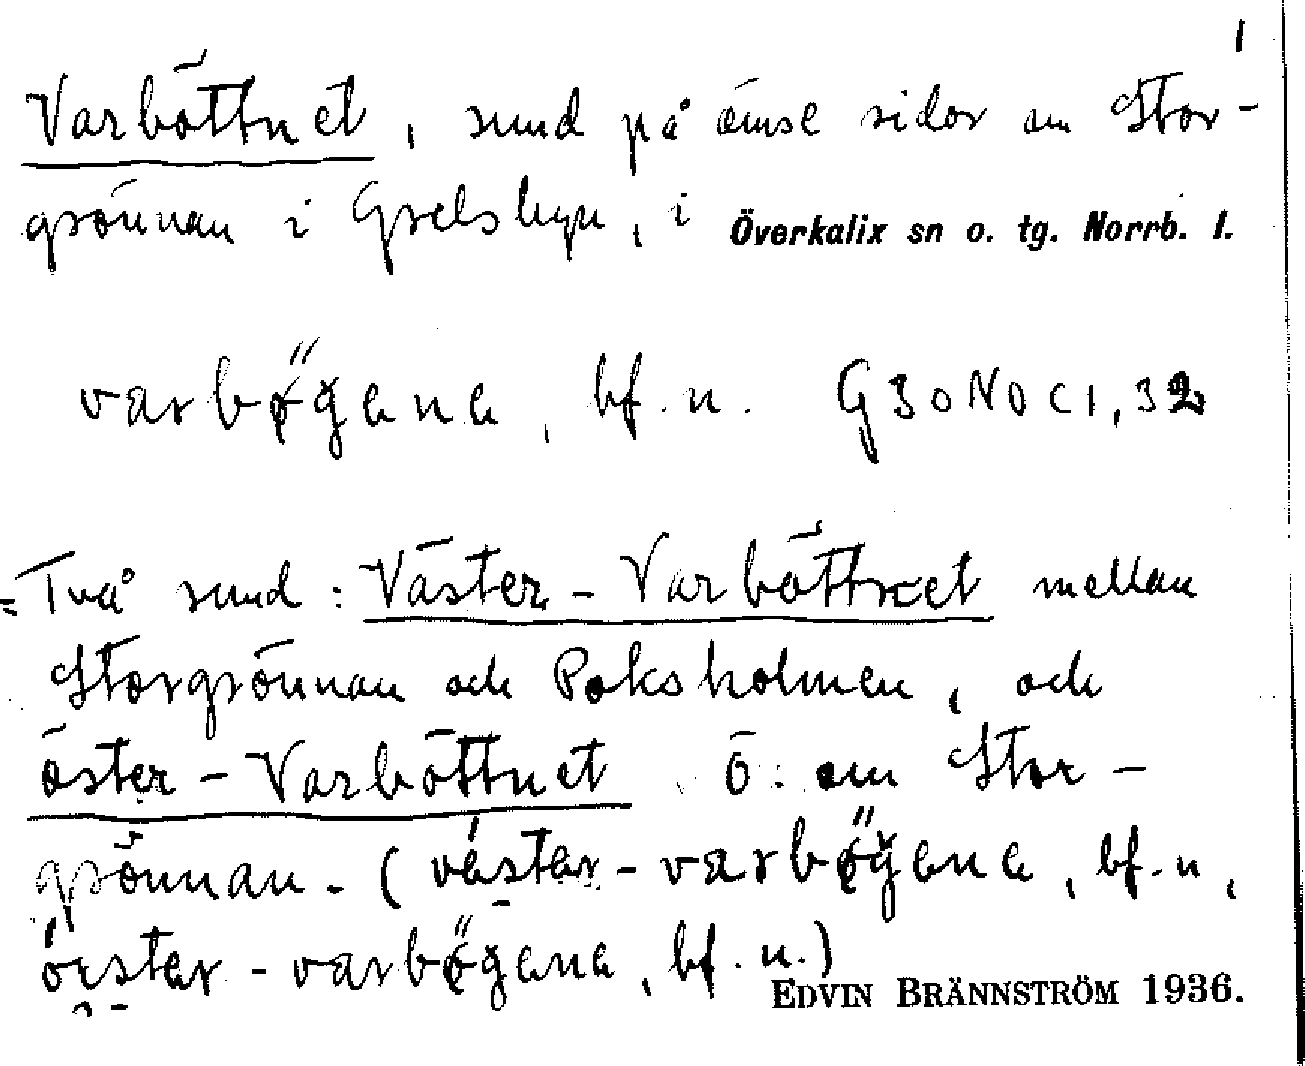 1
Varböttnet, sund på ömse sidor om Stor-
grönnan i Grelsbyn, i Överkalix sn o. tg. Norrb. l.
bf. n. G30N0C1,32
= Två sund: Väster-Varböttnet mellan
Storgrönnan och Poksholmen, och
öster-Varböttnet ö. om Stor-
grönnan. ( bf. n,
bf. n.)
EDVIN BRÄNNSTRÖM 1936.